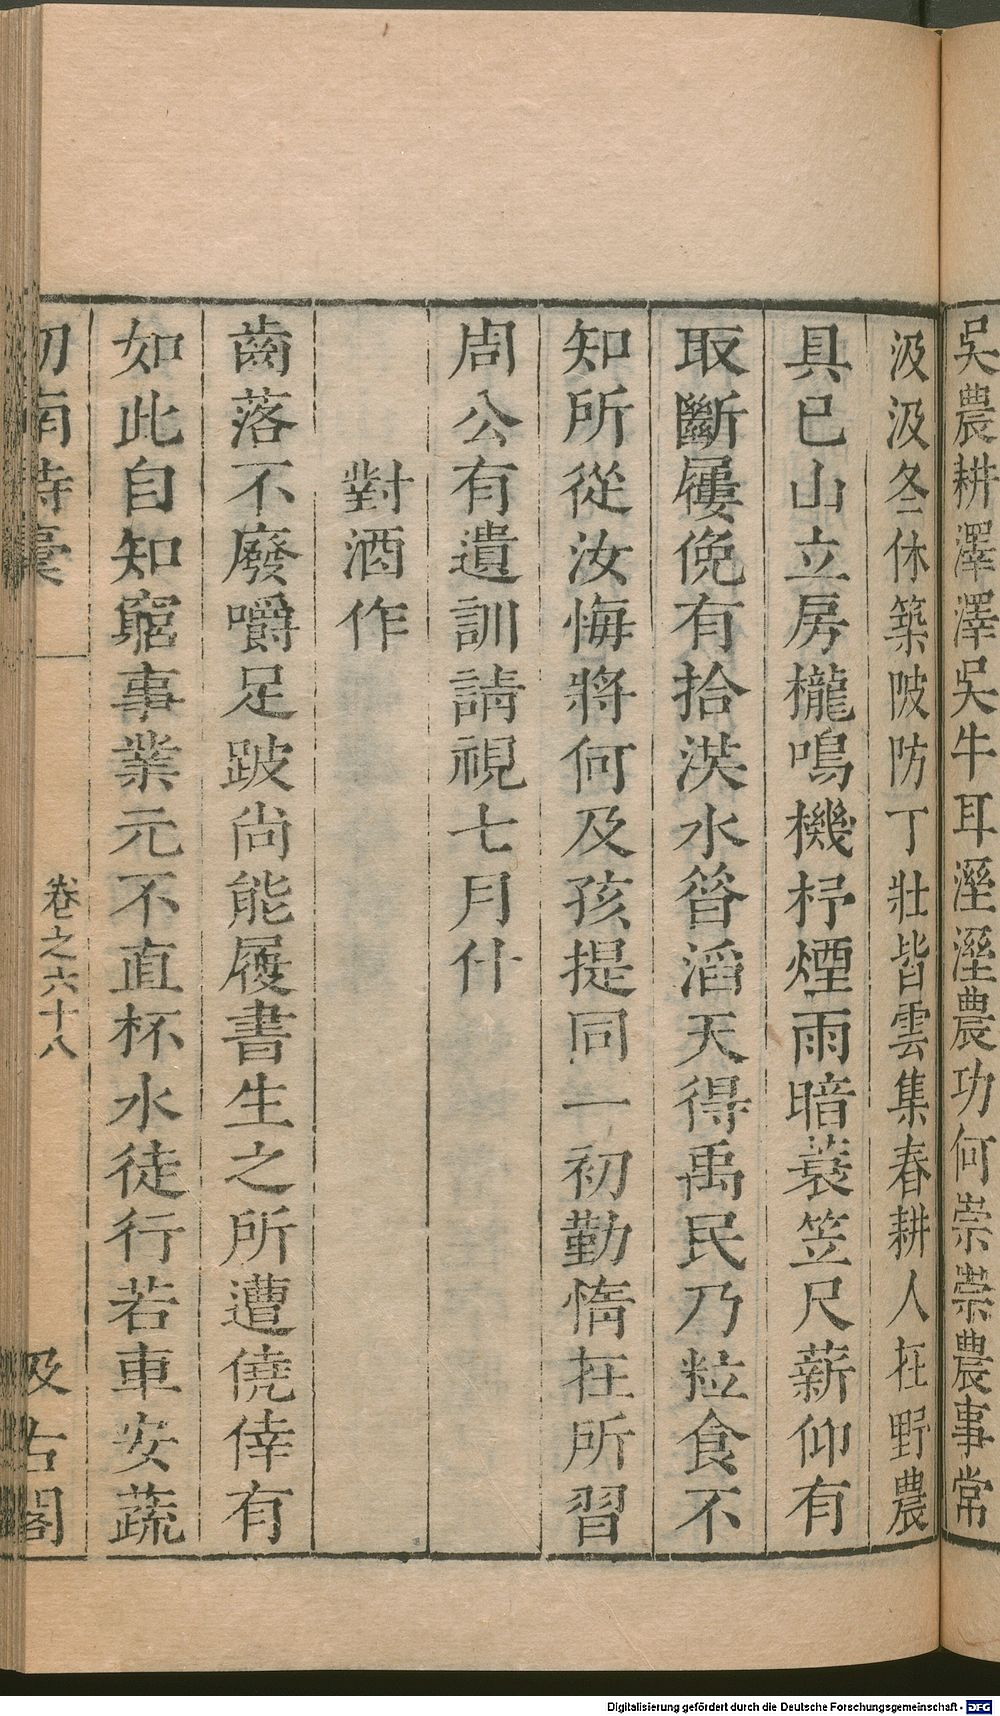 吳農耕澤澤吳牛耳溼溼農功何崇崇農事常
汲汲冬休築陂防丁壯皆雲集春耕人在野農
具已山立房櫳鳴機杼煙雨暗蓑笠尺薪仰有
取斷屨俛有拾洪水昝滔天得禹民乃粒食不
知所從汝悔將何及孩提同一初勤惰在所習
周公有遺訓請視七月什
對酒作
齒落不廢嚼足跛尚能履書生之所遭僥倖有
如此自知窮事業元不直杯水徒行若車安蔬
劎南詩稾
卷之六十八
汲古閣
Digitalisierung gefördert durch die Deutsche Forschungsgemeinschaft - DFG